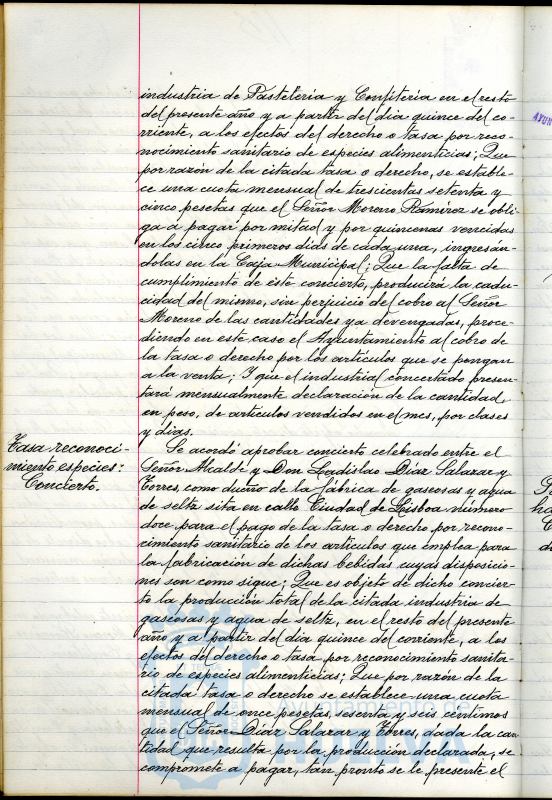 industria de Pastelería y Confitería en el resto
del presente año y a partir del dia quince del co-
rriente, a los efectos del derecho o tasa por reco-
nocimiento sanitario de especies alimenticias; Que
por razón de la citada tasa o derecho, se estable-
ce una cuota mensual de trescientas setenta y
cinco pesetas que el Señor Moreno Ramírez se obli-
ga a pagar por mitad y por quincenas vencidas
en los cinco primeros dias de cada una, ingresán-
dolas en la Caja Municipal; Que la falta de
cumplimiento de este concierto, producirá la cadu-
cidad del mismo, sin perjuicio del cobro al Señor
Moreno de las cantidades ya devengadas, proce-
diendo en este caso el Ayuntamiento al cobro de
la tasa o derecho por los artículos que se pongan
a la venta; Y que el industrial concertado presen-
tará mensualmente declaración de la cantidad,
en peso, de artículos vendidos en el mes, por clases
y dias.
Tasa reconoci-
miento especies:
Concierto.
Se acordó aprobar concierto celebrado entre el
Señor Alcalde y Don Ladislao Díaz Salazar y
Torres, como dueño de la fábrica de gaseosas y agua
de seltz sita en calle Ciudad de Lisboa número
doce para el pago de la tasa o derecho por recono-
cimiento sanitario de los artículos que implea para
la fabricación de dichas bebidas cuyas disposicio-
nes son como sigue: Que es objeto de dicho concier-
to la producción total de la citada industria de
gaseosas y agua de seltz, en el resto del presente
año y a partir del dia quince del corriente, a los
efectos del derecho o tasa por reconocimiento sanita-
rio de especies alimenticias; Que por razón de la
citada tasa o derecho se establece una cuota
mensual de once pesetas, sesenta y seis céntimos
que el Señor Díaz Salazar y Torres, dada la can-
tidad que resulta por la producción declarada, se
compromete a pagar, tan pronto se le presente el
Ayuntamiento de
AYUN